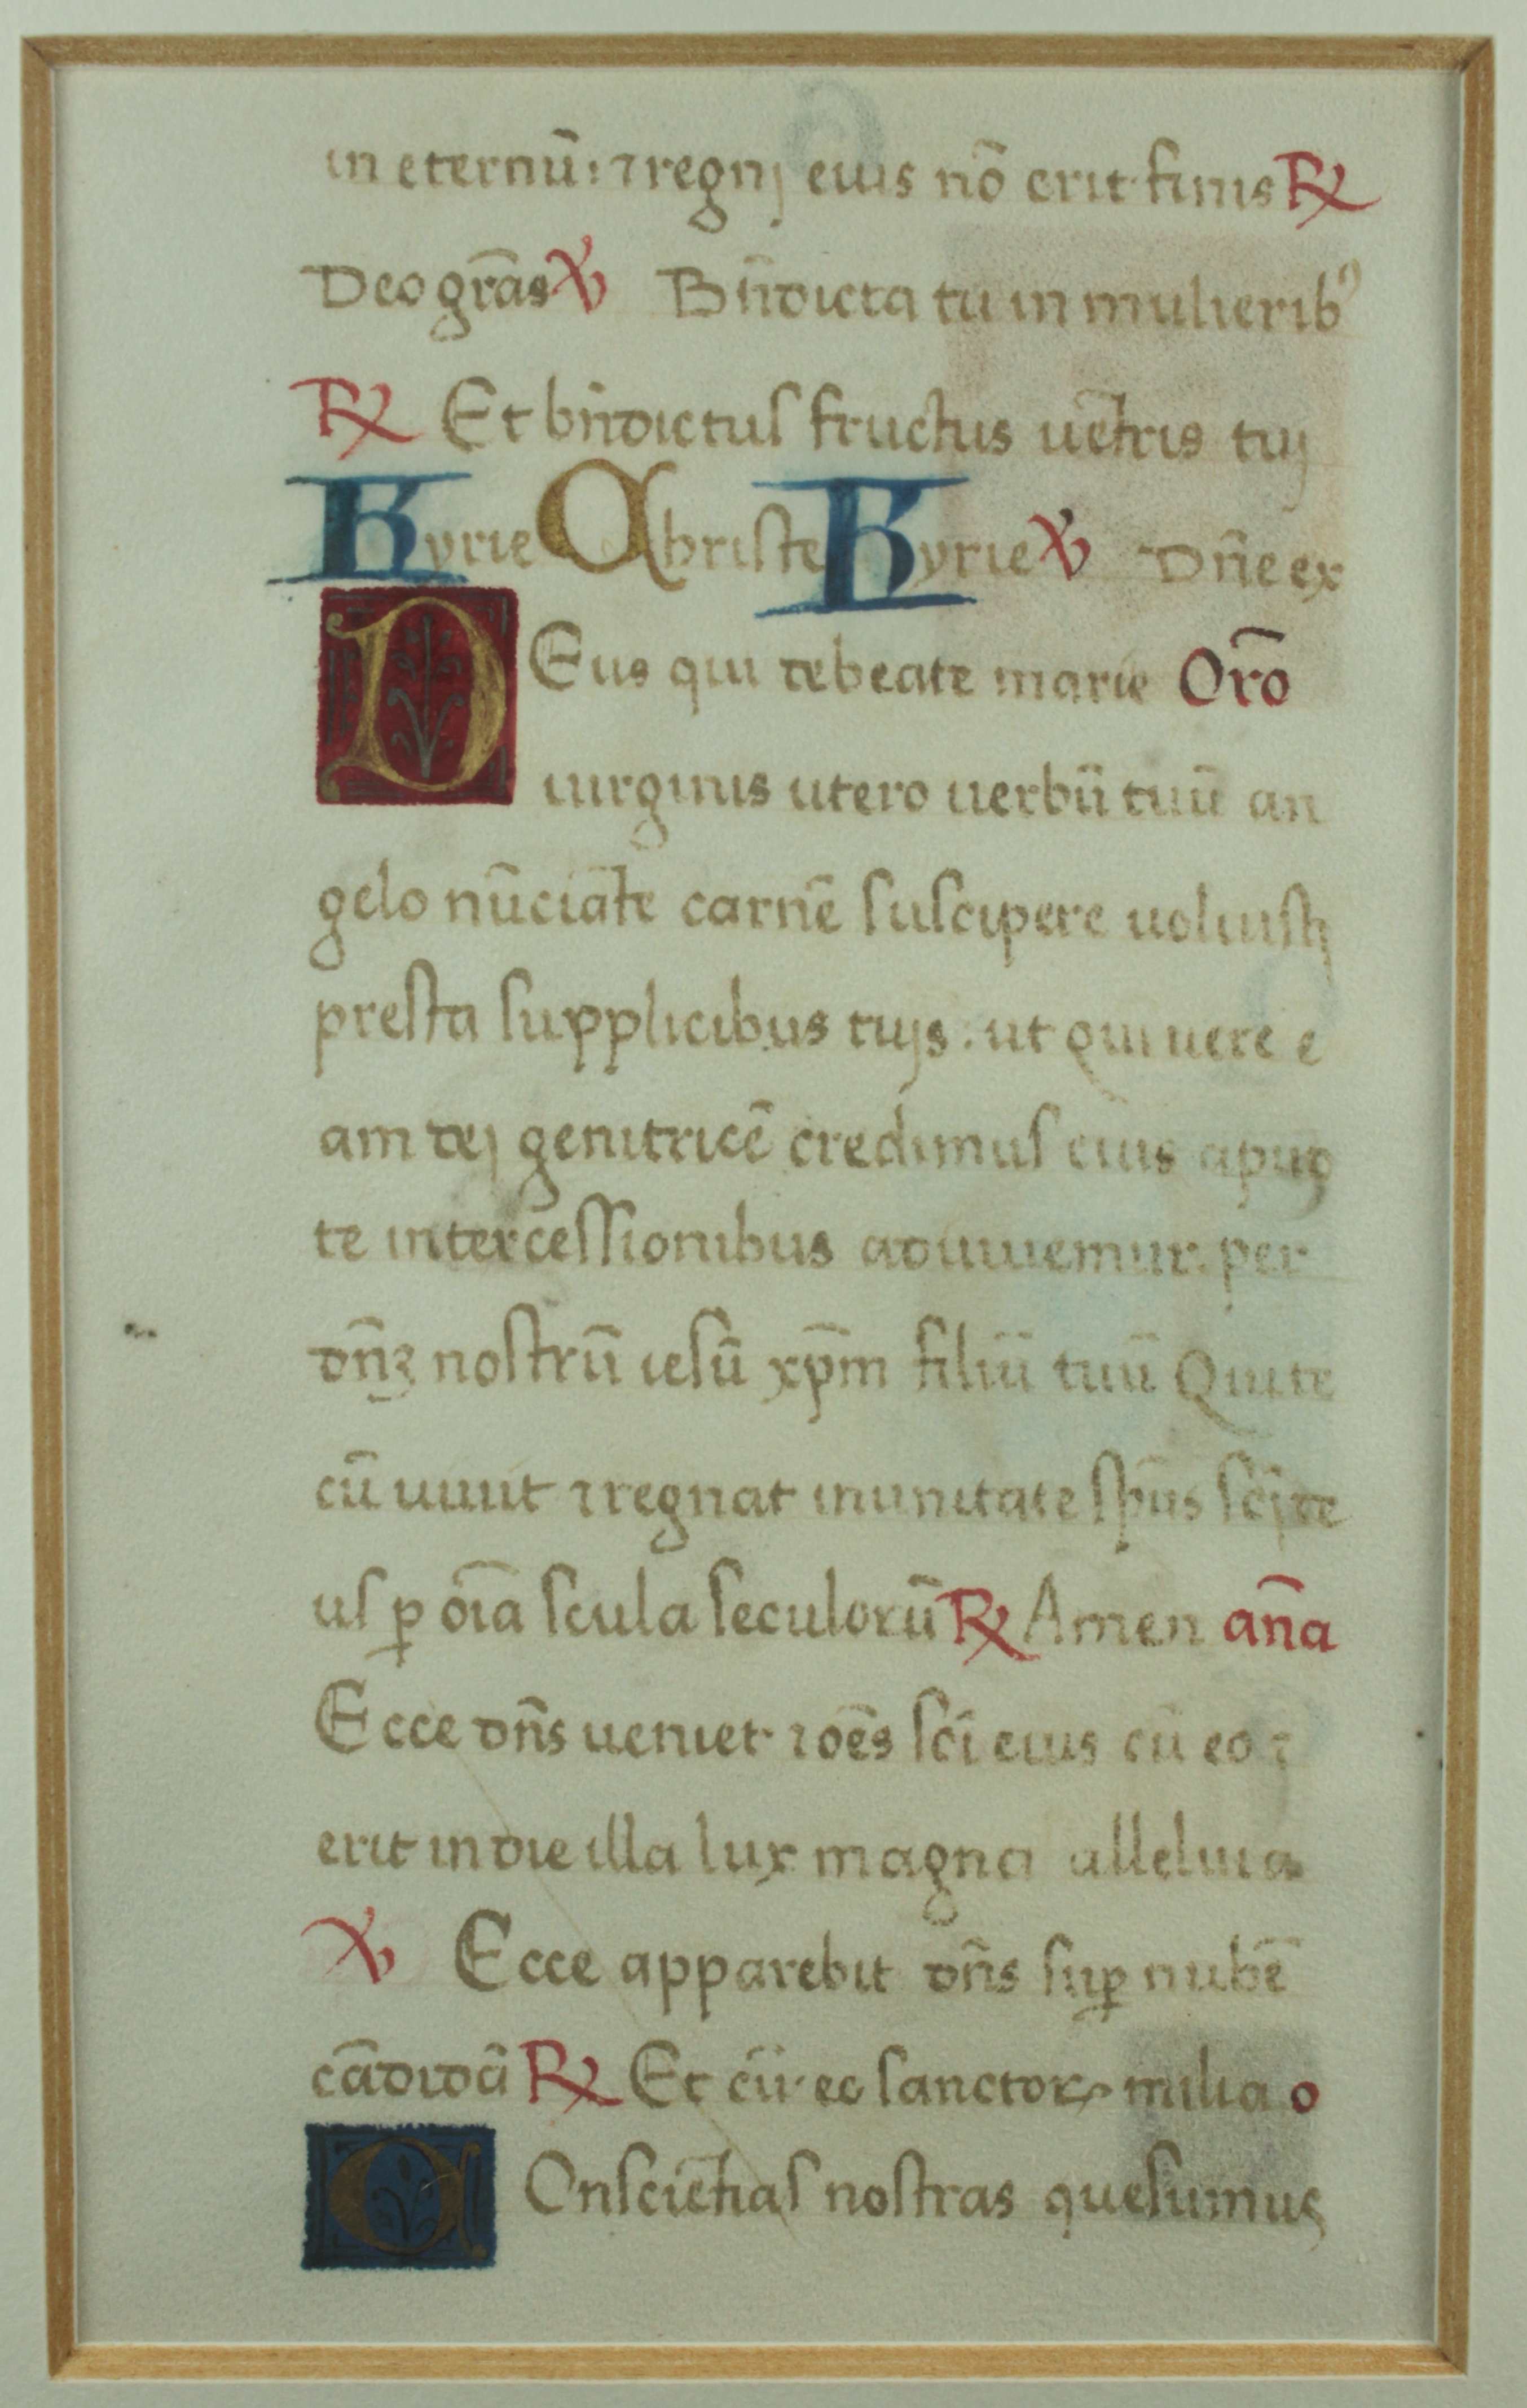 in eternū: ⁊ regnj eius nō erit finis ℞
Deo gr̄as ℣ Bn̄dicta tu in mulierib⁹
℞ Et bn̄dictus fructus uētris tuj
Kyrie Christe Kyrie ℣ Dn̄e ex
DEus qui de beate marie Orō
uirginis utero uerbū tuū an
gelo nūciāte carnē suscipere uoluisti
presta supplicibus tuis. ut qui uere e
am dej genitricē credimus eius apud
te intercessionibus adiuuemur. per
dn̄ꝫ nostrū iesū xp̄m filiū tuū Qui te
cū uiuit ⁊ regnat in unitate sp̄us scī de
us ꝑ oīa scula seculorū ℞ Amen an̄a
Ecce dn̄s ueniet ⁊ oēs scī eius cū eo ⁊
erit in die illa lux magna alleluia
℣ Ecce apparebit dn̄s suꝑ nubē
cādidā ℞ Et cū eo sanctoꝝ milia o
COnsciētias nostras quesumus